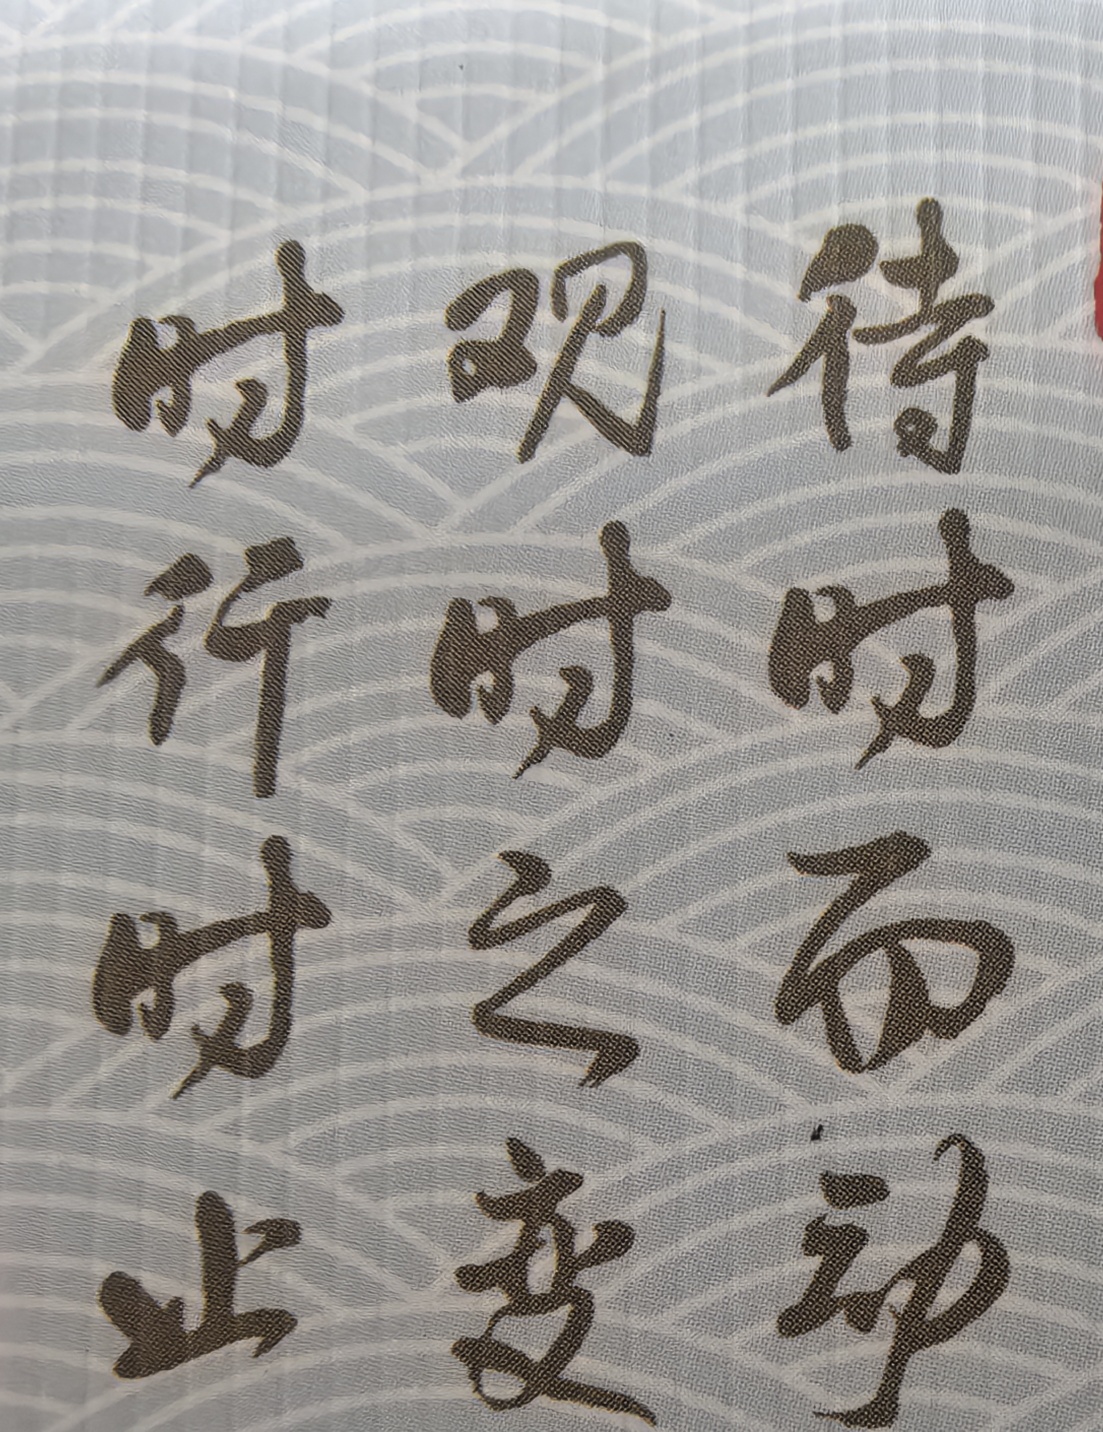 待时而动
观时之变
时行时止